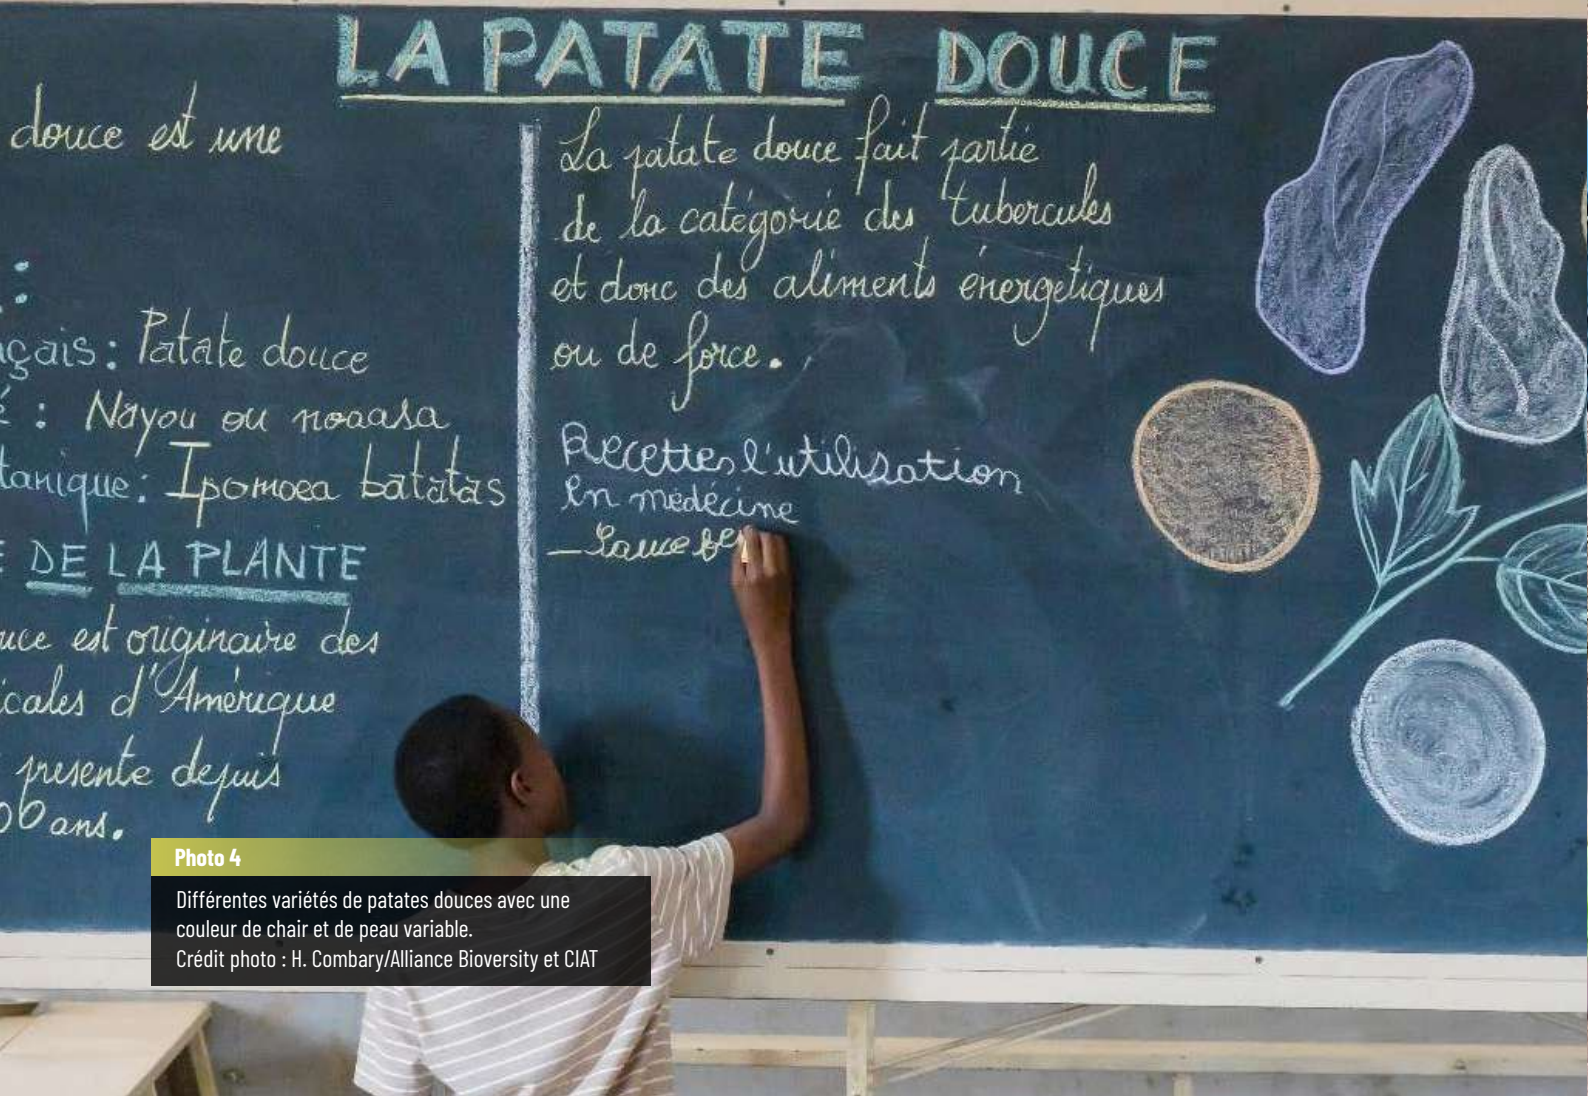 LA PATATE DOUCE
douce est une
:
:
çais : Patate douce
é : Nayou ou noaasa
tanique : Ipomoea batatas
E DE LA PLANTE
uce est originaire des
icales d'Amérique
présente depuis
00 ans.
La patate douce fait partie
de la catégorie des tubercules
et donc des aliments énergétiques
ou de force.
Recettes l'utilisation
En médécine
- Sauce
Photo 4
Différentes variétés de patates douces avec une
couleur de chair et de peau variable.
Crédit photo : H. Combary/Alliance Bioversity et CIAT